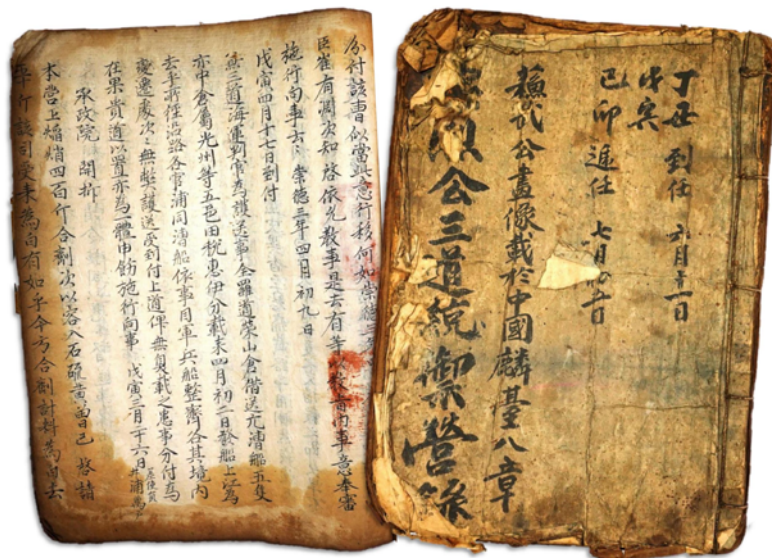 丁丑 到任 六月十一日
戊寅
己卯 遞任 七月初日
武公畫像載於中國麟臺八章
公三道統禦營錄
分付該曹似當意行移何如崇德三年
臣崔有淵次知 啓依允敎事是去有等以敎旨內事意奉審
施行向事云云 崇德三年四月初九日
戊寅四月十七日到付
三道海運判官爲護送事全羅道榮山倉偕送亢漕船五隻
亦中倉屬光州等五邑田稅惠伊分載來四月初二日發船上江爲
去乎前往沿路各官浦同漕船依事目軍兵船整齊各其境內
處次次無弊護送受到付上道俾無負載之患事分付爲
在果貴道以置亦爲一體申飭施行向事 戊寅三月二十六日
承政院 開拆
本營上焰焇四百斤合劑次以容入石硫黃曾已 啓請
行該司受來爲白有如乎今方合劑計料爲白去